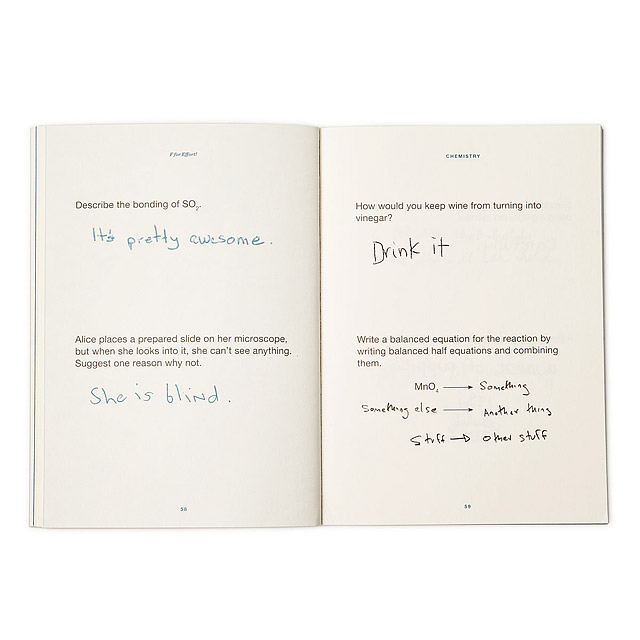 F for Effort!
Describe the bonding of SO₂.
It's pretty awesome.
Alice places a prepared slide on her microscope,
but when she looks into it, she can't see anything.
Suggest one reason why not.
She is blind.
58
CHEMISTRY
How would you keep wine from turning into
vinegar?
Drink it
Write a balanced equation for the reaction by
writing balanced half equations and combining
them.
MnO₄ → Something
Something else → Another thing
Stuff → other stuff
59